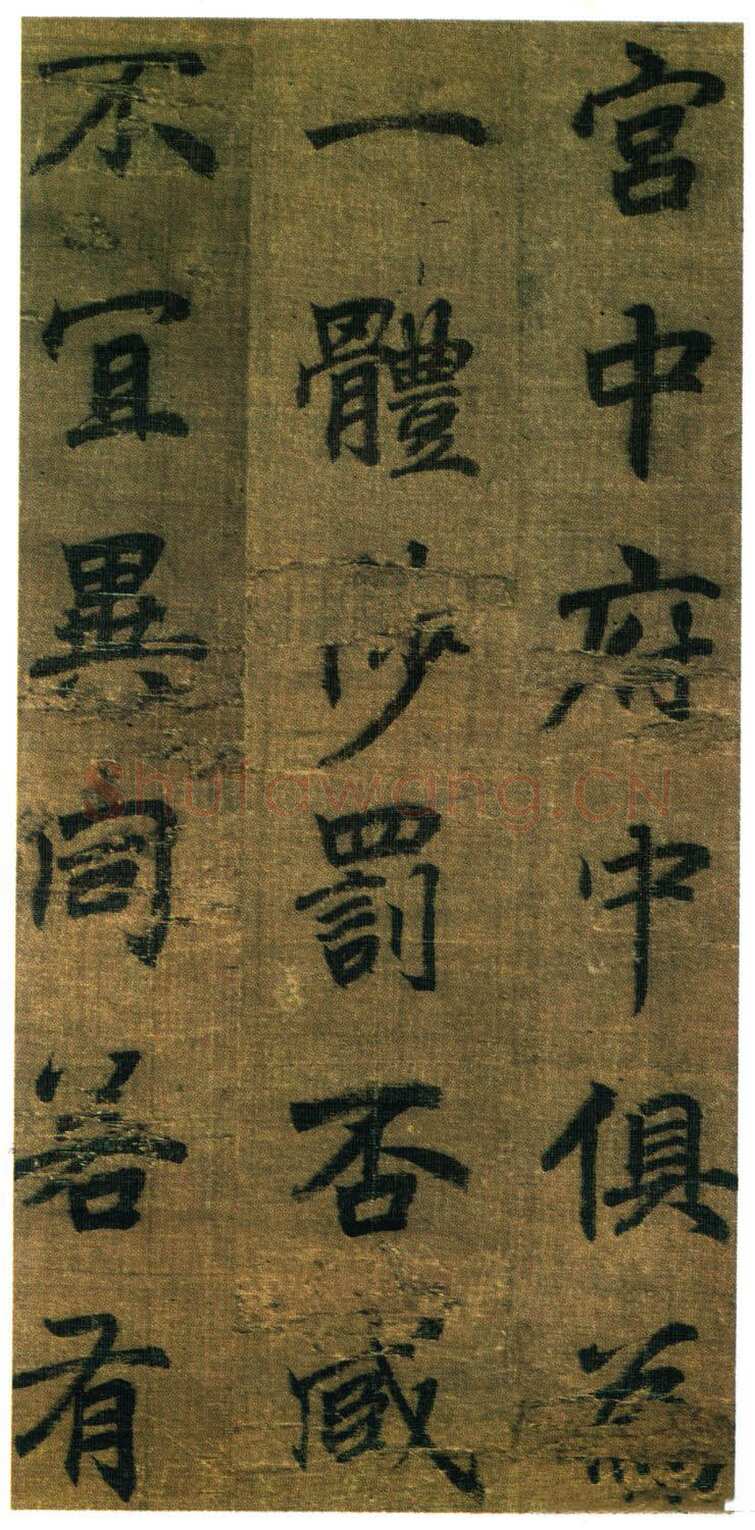 宮中府中俱為
一體陟罰否臧
不宜異同若有
Shufawang.CN